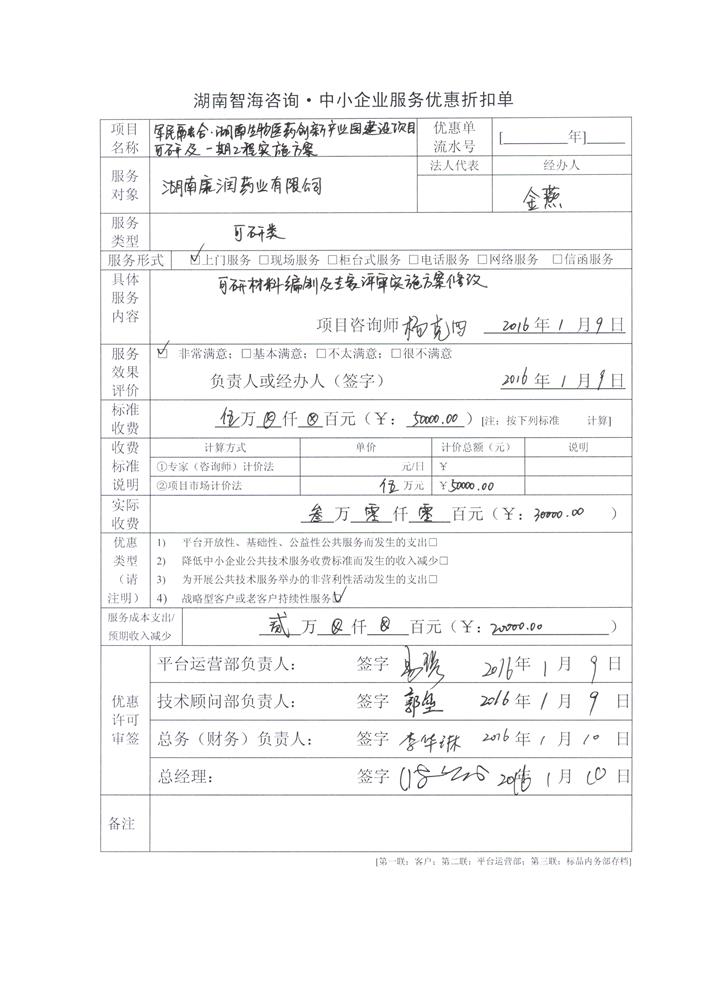 湖南智海咨询·中小企业服务优惠折扣单
项目名称 军民融合·湖南生物医药创新产业园建设项目
可研及一期工程实施方案
优惠单流水号 [ 年]
服务对象 湖南康润药业有限公司
法人代表 经办人
金燕
服务类型 可研类
服务形式 ☑上门服务 □现场服务 □柜台式服务 □电话服务 □网络服务 □信函服务
具体服务内容 可研材料编制及专家评审实施方案修改
项目咨询师 杨克四 2016年1月9日
服务效果评价 ☑ 非常满意；□基本满意；□不太满意；□很不满意
负责人或经办人（签字） 2016年1月9日
标准收费 伍万⊗仟⊗百元（￥：50000.00）[注：按下列标准 计算]
收费标准说明 计算方式 单价 计价总额（元） 说明
①专家（咨询师）计价法 元/日 ￥
②项目市场计价法 伍万元 ￥50000.00
实际收费 叁万零仟零百元（￥：30000.00 ）
优惠类型（请注明） 1) 平台开放性、基础性、公益性公共服务而发生的支出□
2) 降低中小企业公共技术服务收费标准而发生的收入减少□
3) 为开展公共技术服务举办的非营利性活动发生的支出□
4) 战略型客户或老客户持续性服务☑
服务成本支出/预期收入减少 贰万⊗仟⊗百元（￥：20000.00 ）
优惠许可审签 平台运营部负责人： 签字 2016年1月9日
技术顾问部负责人： 签字 郭坚 2016年1月9日
总务（财务）负责人： 签字 李华琳 2016年1月10日
总经理： 签字 2016年1月10日
备注
[第一联：客户；第二联：平台运营部；第三联：标品内务部存档]